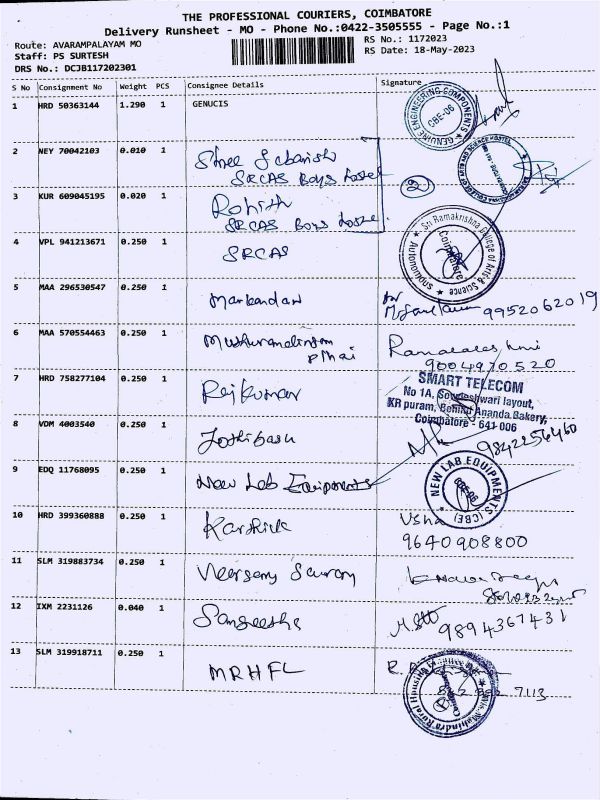 THE PROFESSIONAL COURIERS, COIMBATORE
Delivery Runsheet - MO - Phone No.:0422-3505555 - Page No.:1
Route: AVARAMPALAYAM MO
RS No.: 1172023
Staff: PS SURTESH
RS Date: 18-May-2023
DRS No.: DCJB117202301
S No Consignment No Weight PCS Consignee Details Signature
1 HRD 50363144 1.290 1 GENUCIS
GENUINE ENGINEERING COMPONENTS
CBE-06
2 NEY 70042103 0.010 1 Shree Sabarish
SRCAS Boys Hostel
2
3 KUR 609045195 0.020 1 Rohith
SRCAS Boys Hostel
4 VPL 941213671 0.250 1 SRCAS
Sri Ramakrishna College of Arts & Science
Autonomous
Coimbatore
5 MAA 296530547 0.250 1 Markandan
9952062019
6 MAA 570554463 0.250 1 Muthuramalingam
Pillai
9004970520
7 HRD 758277104 0.250 1 Rajkumar
SMART TELECOM
No 1A, Sowdeshwari layout,
KR puram, Behind Ananda Bakery,
Coimbatore - 641 006
8 VDM 4003540 0.250 1 Jothibasu
9842256460
9 EDQ 11768095 0.250 1 New Lab Equipments
NEW LAB EQUIPMENTS (CBE)
CBE-06
10 HRD 399360888 0.250 1 Karthick
Usha
9640908800
11 SLM 319883734 0.250 1
12 IXM 2231126 0.040 1 Sangeetha
9894367431
13 SLM 319918711 0.250 1 MRHFL
7113